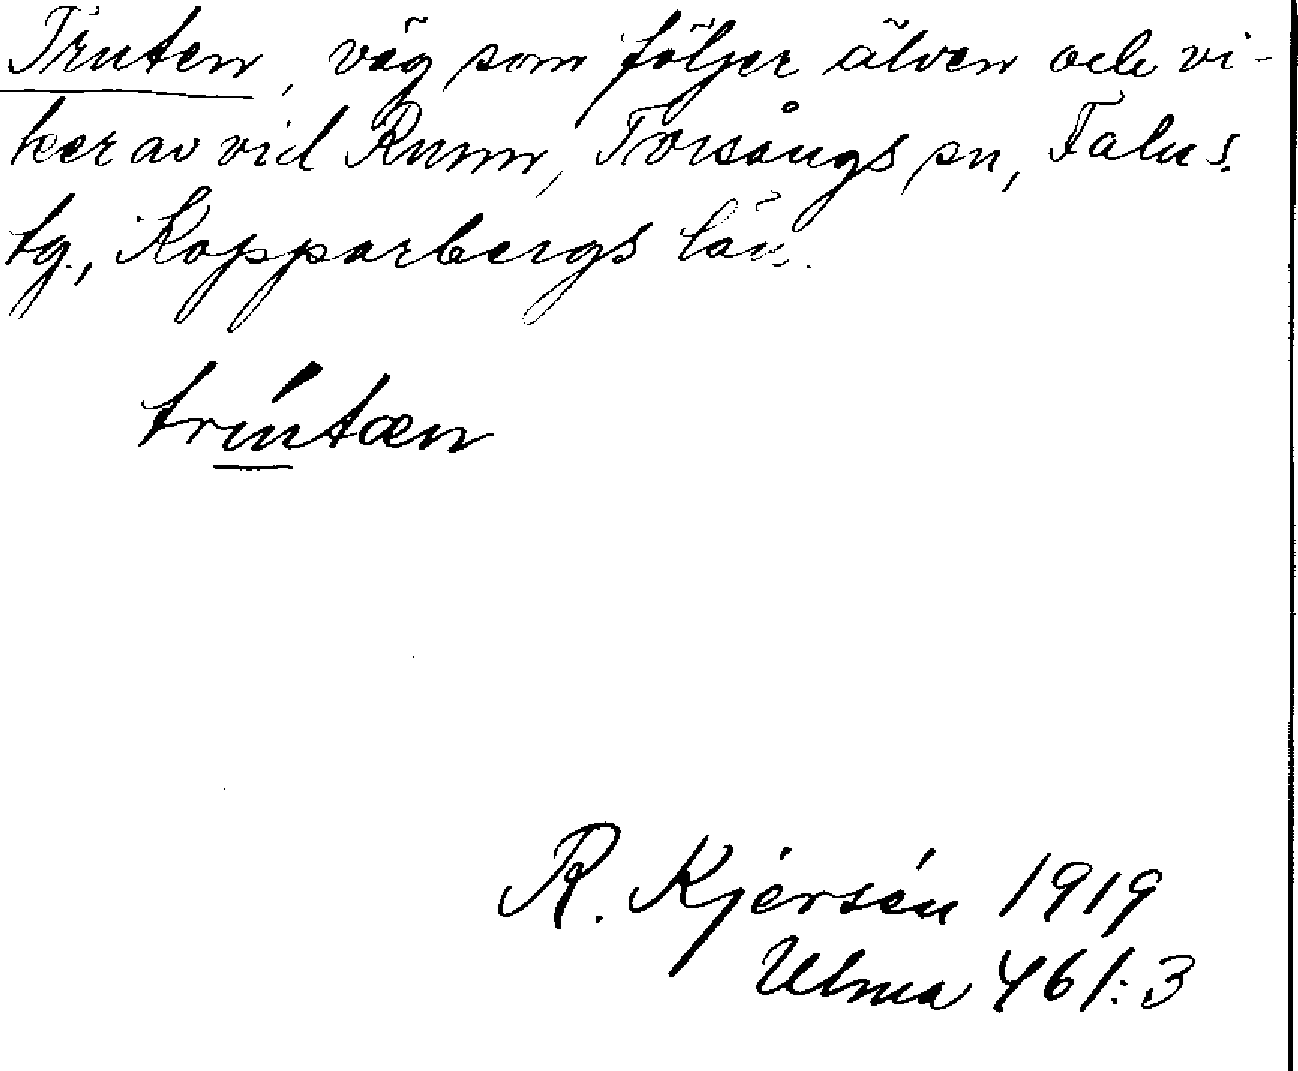 Truten, väg som följer älven och vi-
ker av vid Runn, Torsångs sn, Falu s.
tg., Kopparbergs län.
trútæn
R. Kjérsén 1919
Ulma 461:3